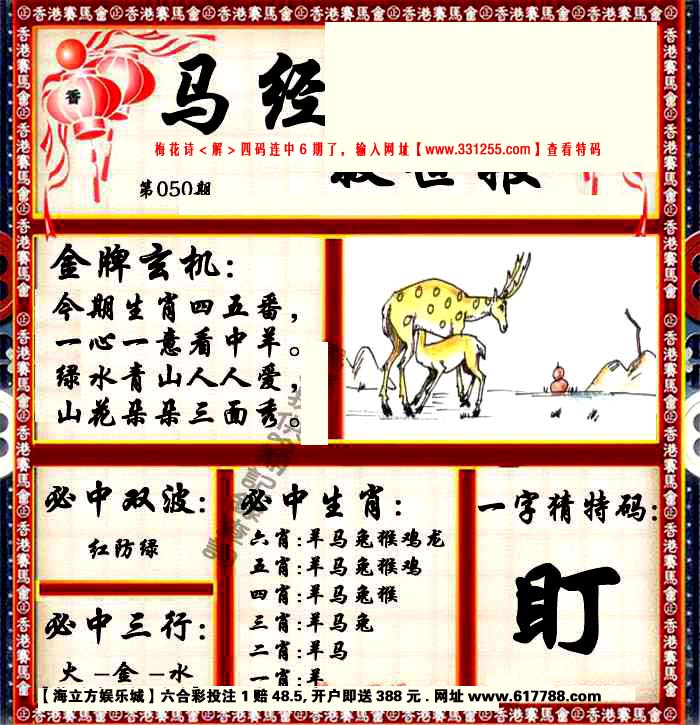 香港賽馬會
香
马经
梅花诗＜解＞四码连中6期了，输入网址【www.331255.com】查看特码
第050期
金牌玄机：
今期生肖四五番，
一心一意看中羊。
绿水青山人人爱，
山花朵朵三面秀。
必中双波：
红防绿
必中三行：
火－金－水
必中生肖：
六肖：羊马兔猴鸡龙
五肖：羊马兔猴鸡
四肖：羊马兔猴
三肖：羊马兔
二肖：羊马
一肖：羊
一字猜特码：
盯
【海立方娱乐城】六合彩投注1赔48.5，开户即送388元．网址www.617788.com